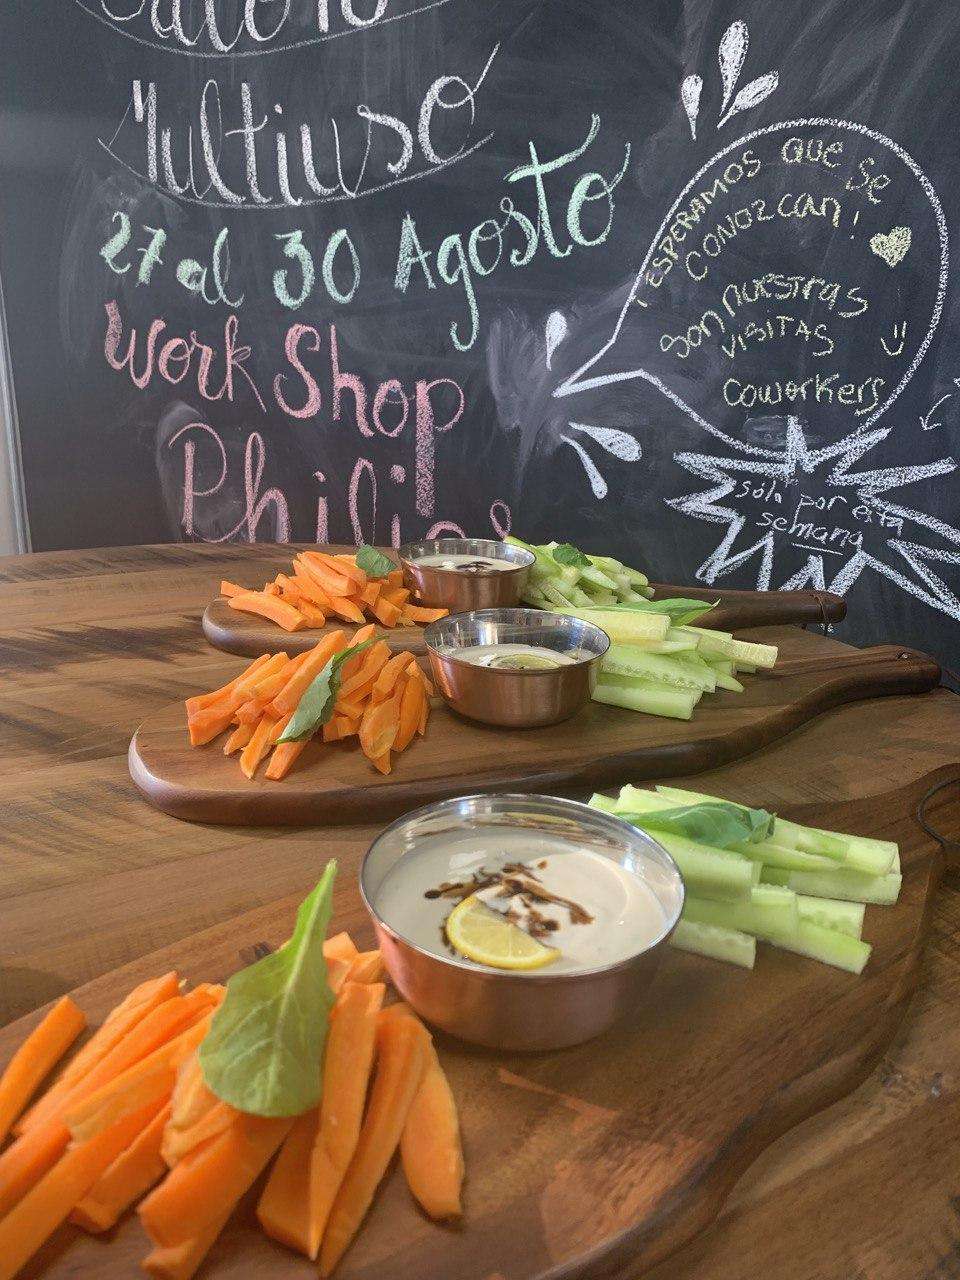 Salón
Multiuso
27 al 30 Agosto
Work Shop
Philips
¡ESPERAMOS QUE Se
CONOZcan!
Son nuestras
VISITAS
Coworkers
sólo por esta
semana